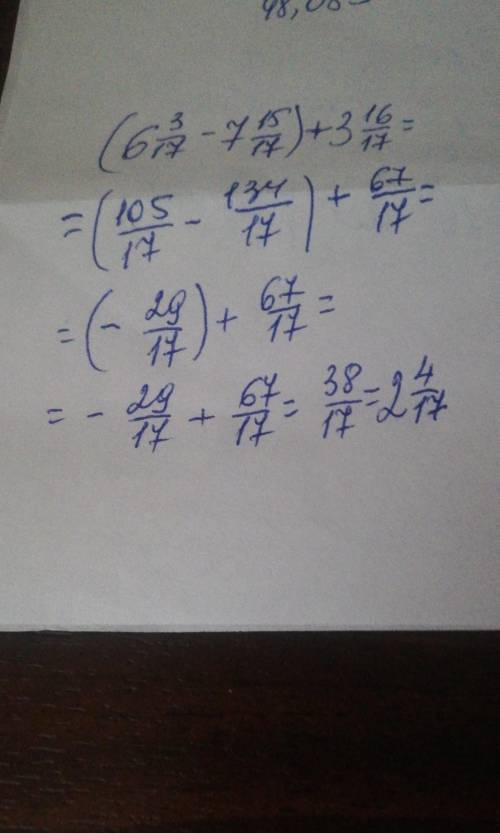 (6 3/17 - 7 15/17) + 3 16/17 =
= (105/17 - 134/17) + 67/17 =
= (- 29/17) + 67/17 =
= - 29/17 + 67/17 = 38/17 = 2 4/17